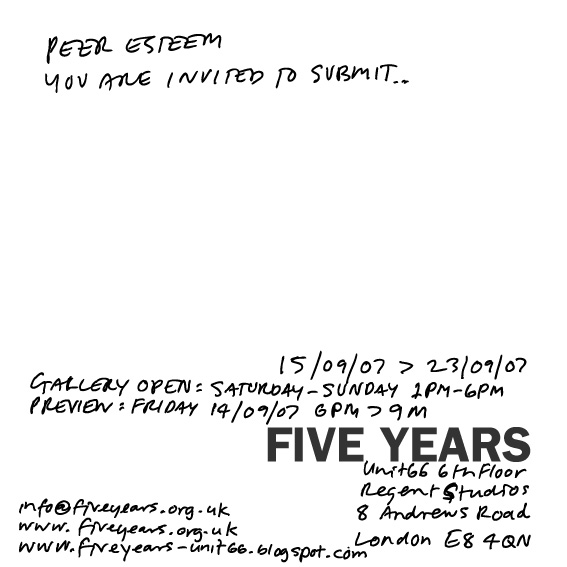 PEER ESTEEM
YOU ARE INVITED TO SUBMIT..
15/09/07 > 23/09/07
GALLERY OPEN: SATURDAY-SUNDAY 1PM-6PM
PREVIEW: FRIDAY 14/09/07 6PM > 9M
FIVE YEARS
Unit66 6th Floor
Regent Studios
8 Andrews Road
London E8 4QN
info@fiveyears.org.uk
www.fiveyears.org.uk
www.fiveyears-unit66.blogspot.com